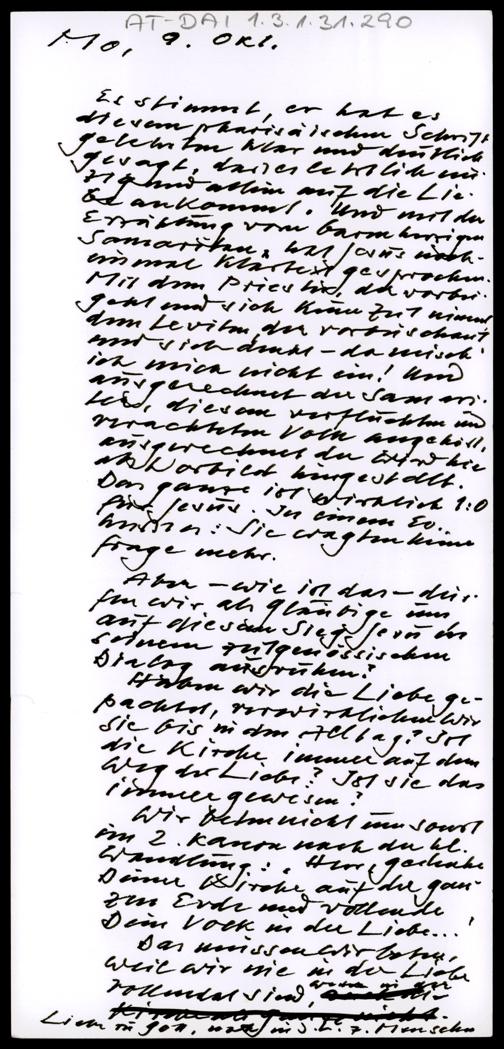 AT-DAI 1.3.1.31.290
Mo, 9. Okt.
Es stimmt, er hat es
diesem pharisäischen Schrift-
gelehrten klar und deutlich
gesagt, dass es letztlich ein-
zig und allein auf die Lie-
be ankommt. Und mit der
Erzählung vom barmherzigen
Samaritan, hat Jesus noch-
einmal Klartext gesprochen.
Mit dem Priester, der vorbei
geht und sich keine Zeit nimmt
dem Leviten, der vorbeischaut
und sich denkt - da misch
ich mich nicht ein! Und
ausgerechnet der Samari-
ter, diesem verfluchten und
verachteten Volk angehört,
ausgerechnet der wird hier
als Vorbild hingestellt.
Das ganze ist wirklich 1:0
für Jesus. In einem Ev.
heisst es: Sie wagten keine
Frage mehr.
Aber - wie ist das - dür-
fen wir als Gläubige uns
auf diesem Sieg Jesu in
seinem zeitgenössischen
Dialog ausruhen?
Haben wir die Liebe ge-
pachtet, verwirklichen wir
sie bis in den Alltag? Ist
die Kirche immer auf dem
Weg der Liebe? Ist sie das
immer gewesen?
Wir beten nicht umsonst
im 2. Kanon nach der hl.
Wandlung: Herr, gedenke
Deiner Kirche auf der gan-
zen Erde und vollende
Dein Volk in der Liebe...!
Das müssen wir beten,
weil wir nie in der Liebe
vollendet sind, weder in der
Liebe zu Gott, noch in d. L. z. Menschen